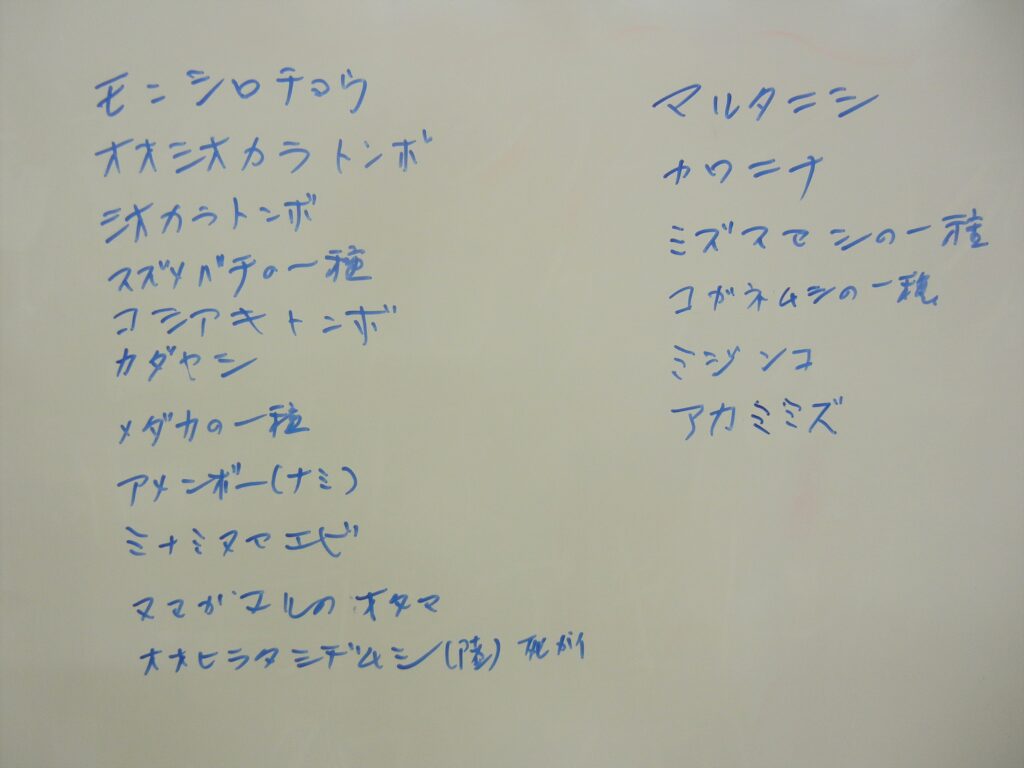 モンシロチョウ
オオシオカラトンボ
シオカラトンボ
スズメバチの一種
コシアキトンボ
カダヤシ
メダカの一種
アメンボー(ナミ)
ミナミヌマエビ
ヌマガエルのオタマ
オオヒラタシデムシ(陸) 死ガイ
マルタニシ
カワニナ
ミズスマシの一種
コガネムシの一種
ミジンコ
アカミミズ